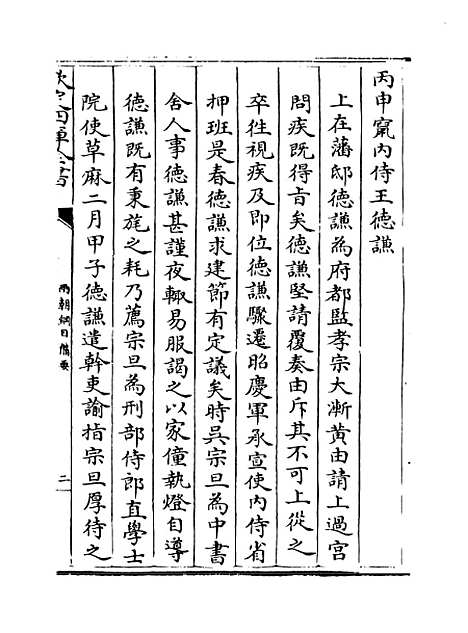 丙申竄內侍王德謙
上在藩邸德謙為府都監孝宗大漸黃由請上過宮
問疾既得旨矣德謙堅請覆奏由斥其不可上從之
卒往視疾及即位德謙驟遷昭慶軍承宣使內侍省
押班是春德謙求建節有定議矣時吳宗旦為中書
舍人事德謙甚謹夜輙易服謁之以家僮執燈自導
德謙既有秉旄之耗乃薦宗旦為刑部侍郎直學士
院使草麻二月甲子德謙遣幹吏諭指宗旦厚待之
欽定四庫全書
兩朝綱目備要
二